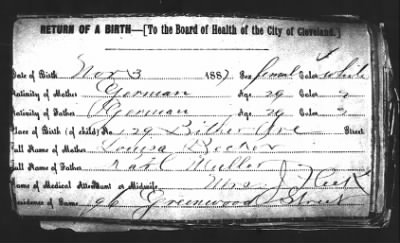 RETURN OF A BIRTH—[To the Board of Health of the City of Cleveland.]
Date of Birth Nov 3 1887 Sex female Color white
Nativity of Mother German Age 29 Color "
Nativity of Father German Age 29 Color "
Place of Birth (of child) No 129 Ave Street
Full Name of Mother Louisa Becker
Full Name of Father Karl Muller
Name of Medical Attendant or Midwife Mrs. J.
Residence of Same 96 Greenwood Street